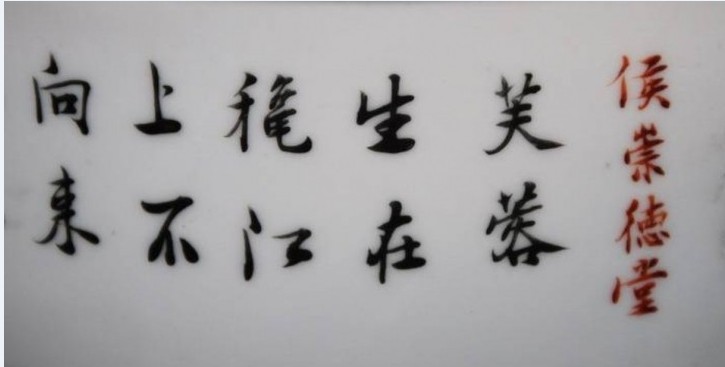 侯崇德堂
芙蓉
生在
穐江
上不
向来